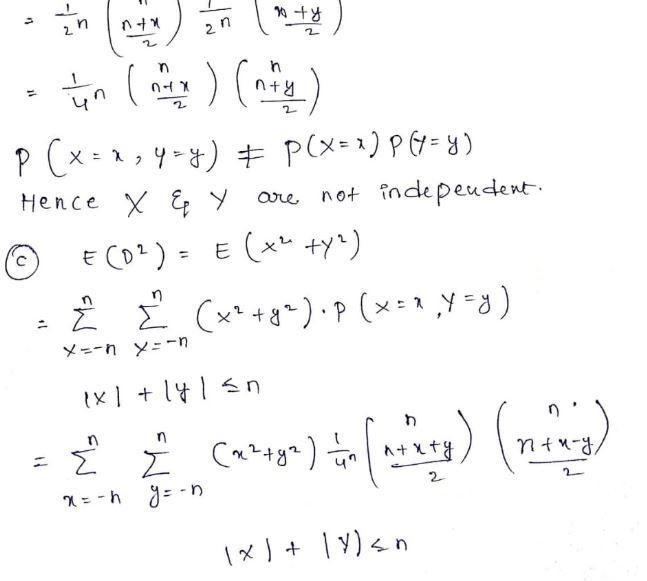 = 1/2^n (n (n+x)/2) 1/2^n (n+y)/2)
= 1/4^n (n (n+x)/2) (n (n+y)/2)
P(X=x, Y=y) ≠ P(X=x) P(Y=y)
Hence X & Y are not independent.
(c) E(D²) = E(x² + y²)
= Σ_{x=-n}^{n} Σ_{y=-n}^{n} (x²+y²)·P(X=x, Y=y)
|x| + |y| ≤ n
= Σ_{x=-n}^{n} Σ_{y=-n}^{n} (x²+y²) 1/4^n (n (n+x+y)/2) (n (n+x-y)/2)
|x| + |y| ≤ n